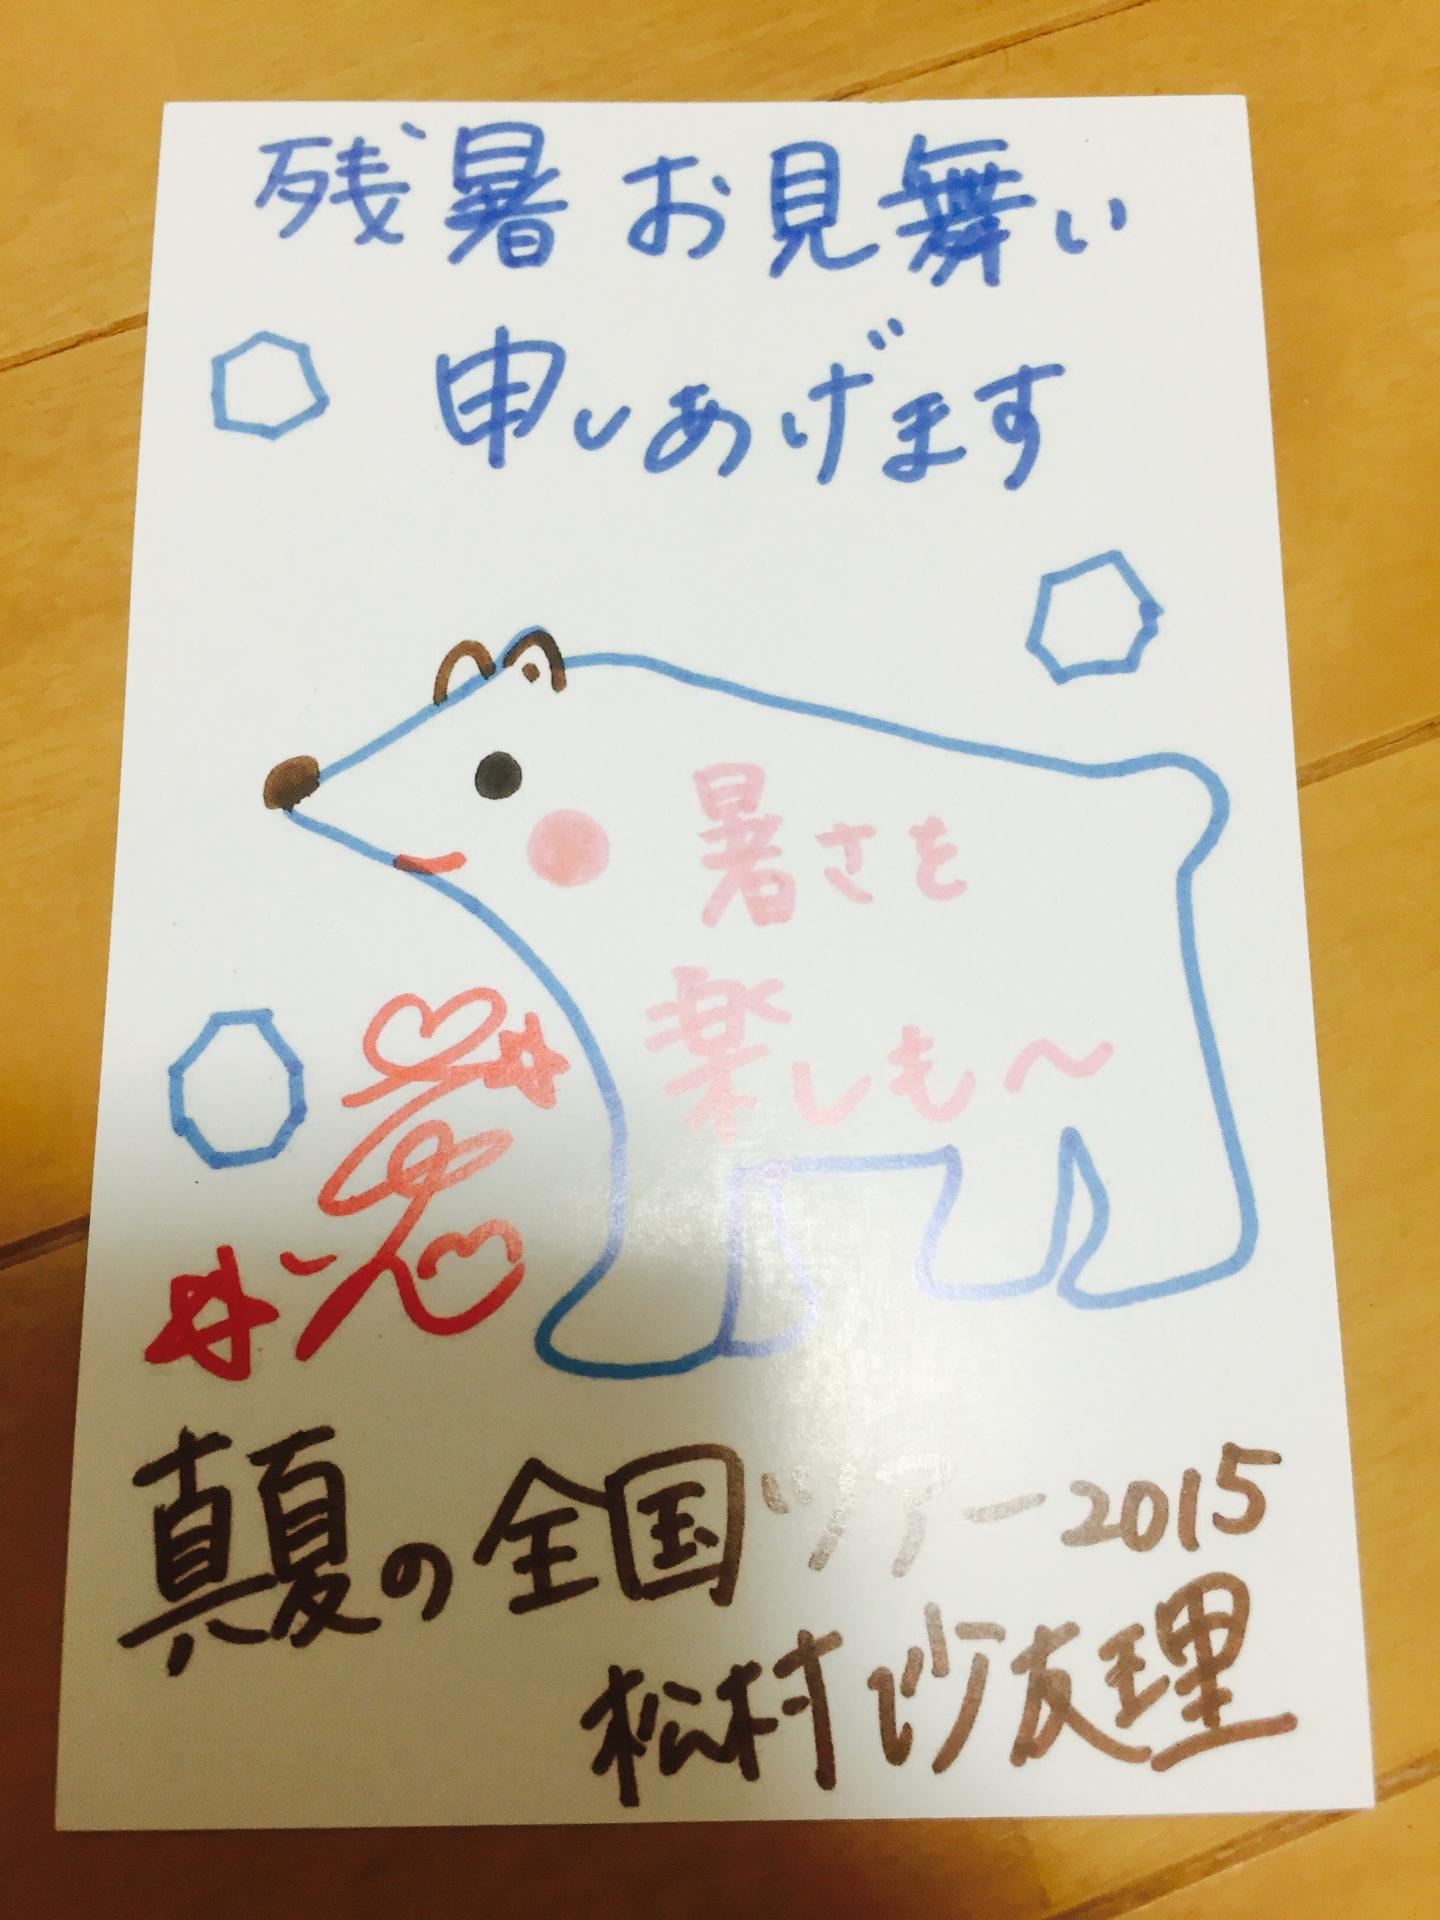 残暑お見舞い
申しあげます
暑さを
楽しも〜
真夏の全国ツアー2015
松村沙友理